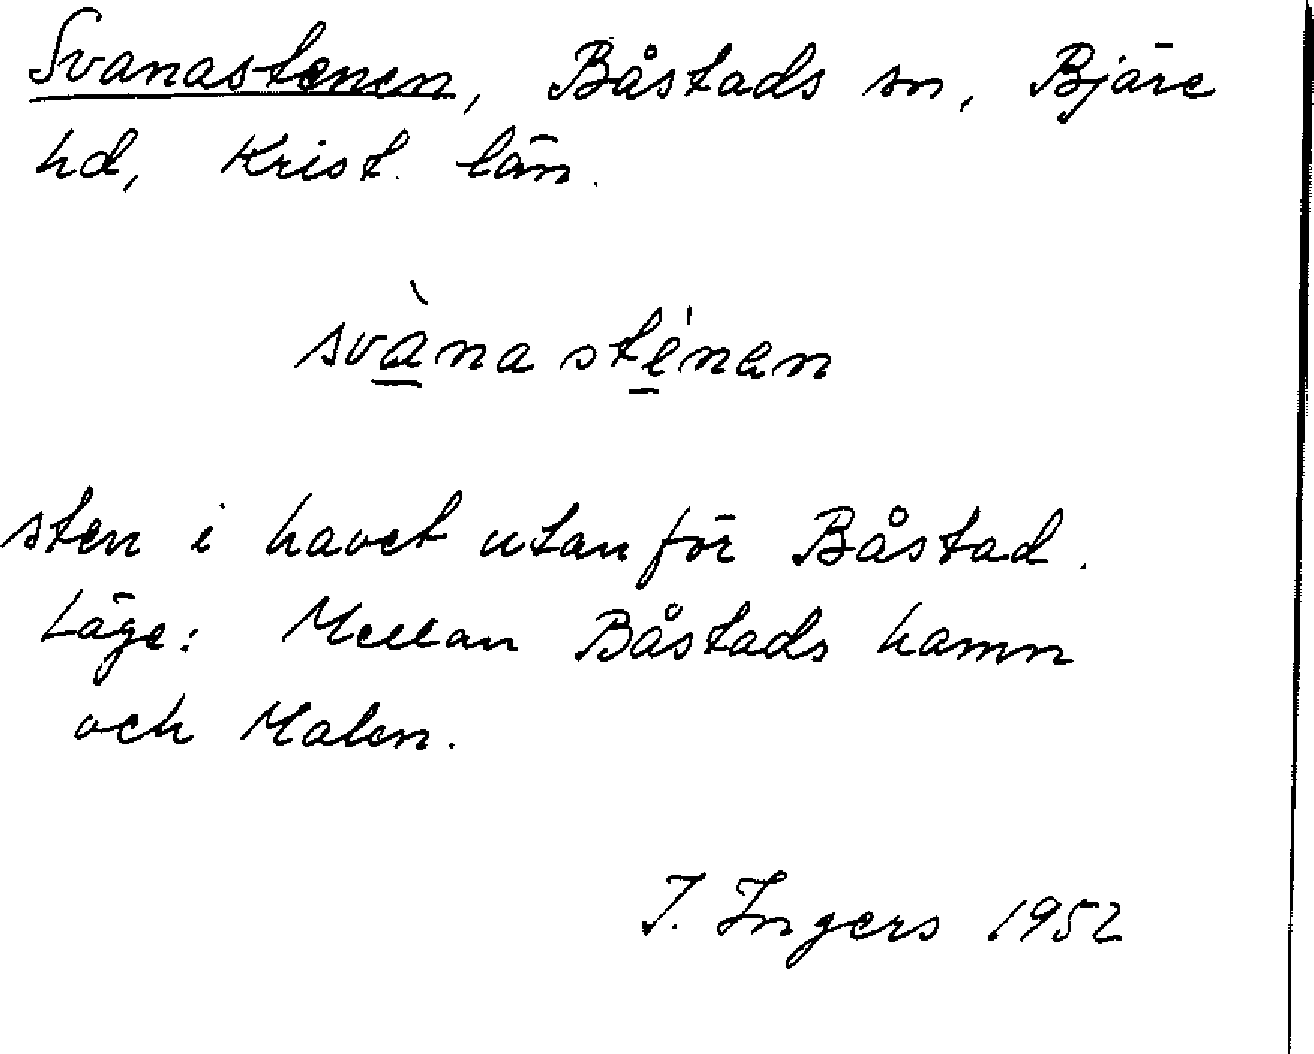 Svanastenen, Båstads sn, Bjäre
hd, Krist. län.
svàna sténan
sten i havet utanför Båstad.
Läge: Mellan Båstads hamn
och Malen.
I. Ingers 1952